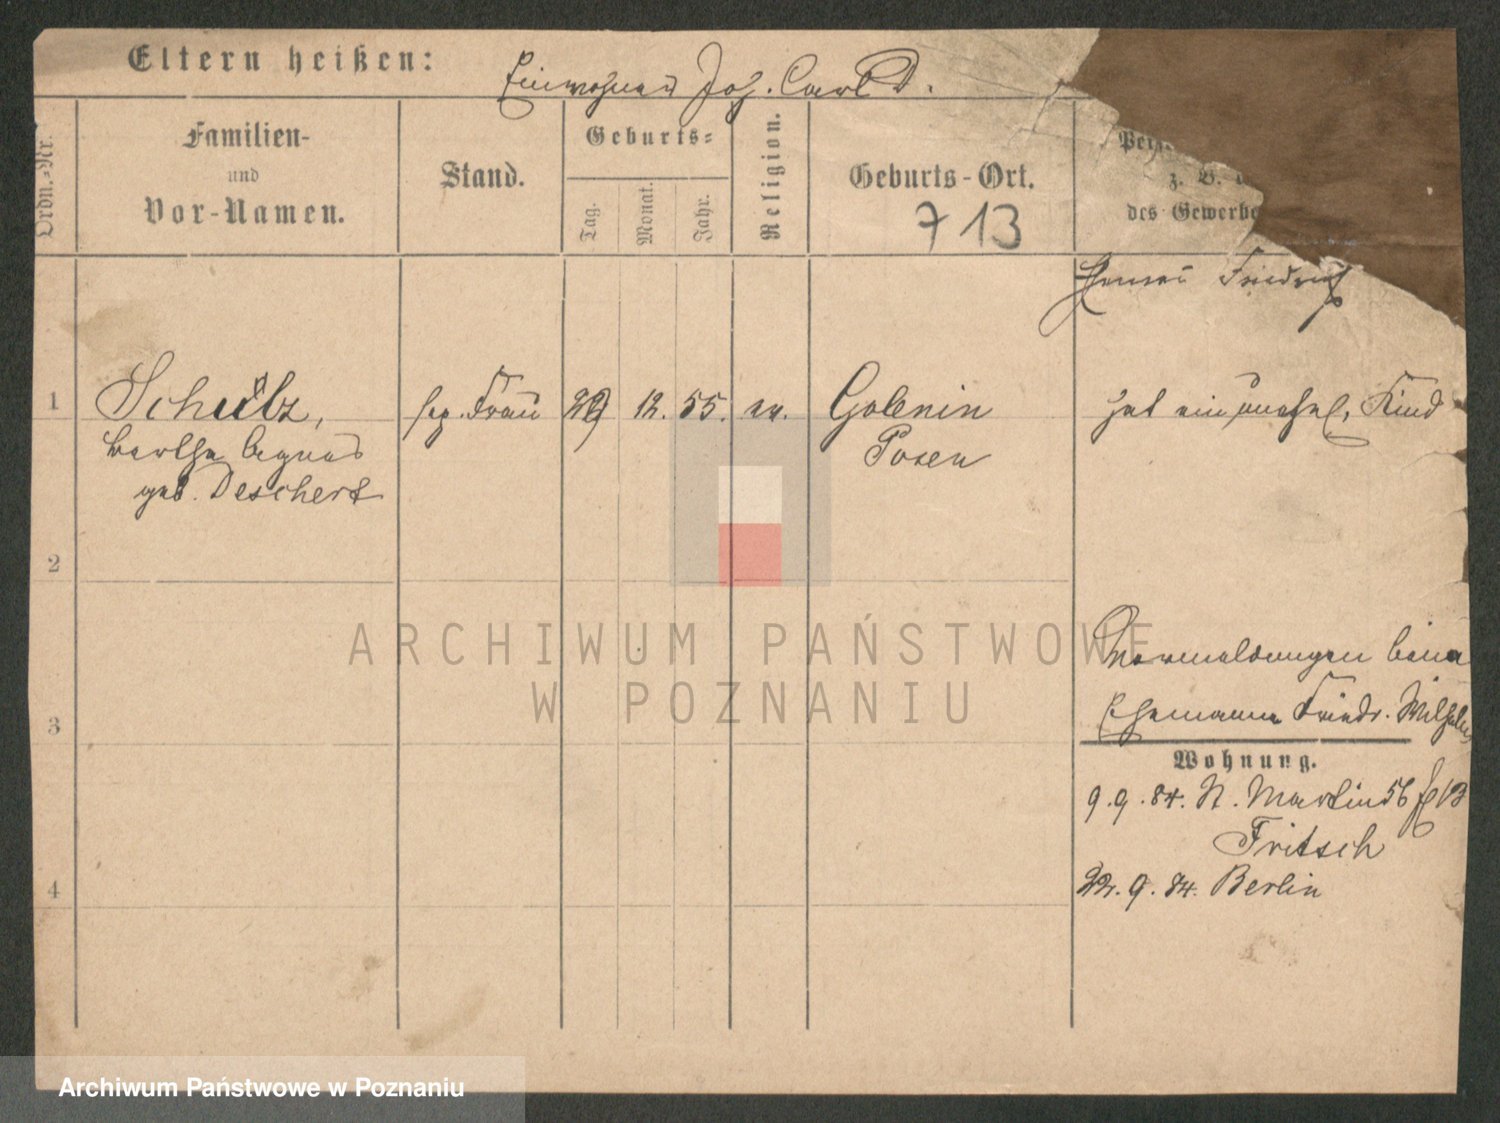 Eltern heißen: Einwohner Joh. Carl D.
Ordn.-Nr.
Familien-
und
Vor-Namen.
Stand.
Geburts-
Tag.
Monat.
Jahr.
Religion.
Geburts-Ort.
713
z. B.
des Gewerbe
Friedrich
1
Schulz,
Bertha Agnes
geb. Deschert
sep. Frau
29 12. 55. ev.
Golenin
Posen
hat ein unehel. Kind
2
3
4
Vermeldungen beim
Ehemann Friedr. Wilhelm
Wohnung.
9.9.84. St. Martin 56
Fritsch
22.9.84. Berlin
ARCHIWUM PAŃSTWOWE
W POZNANIU
Archiwum Państwowe w Poznaniu